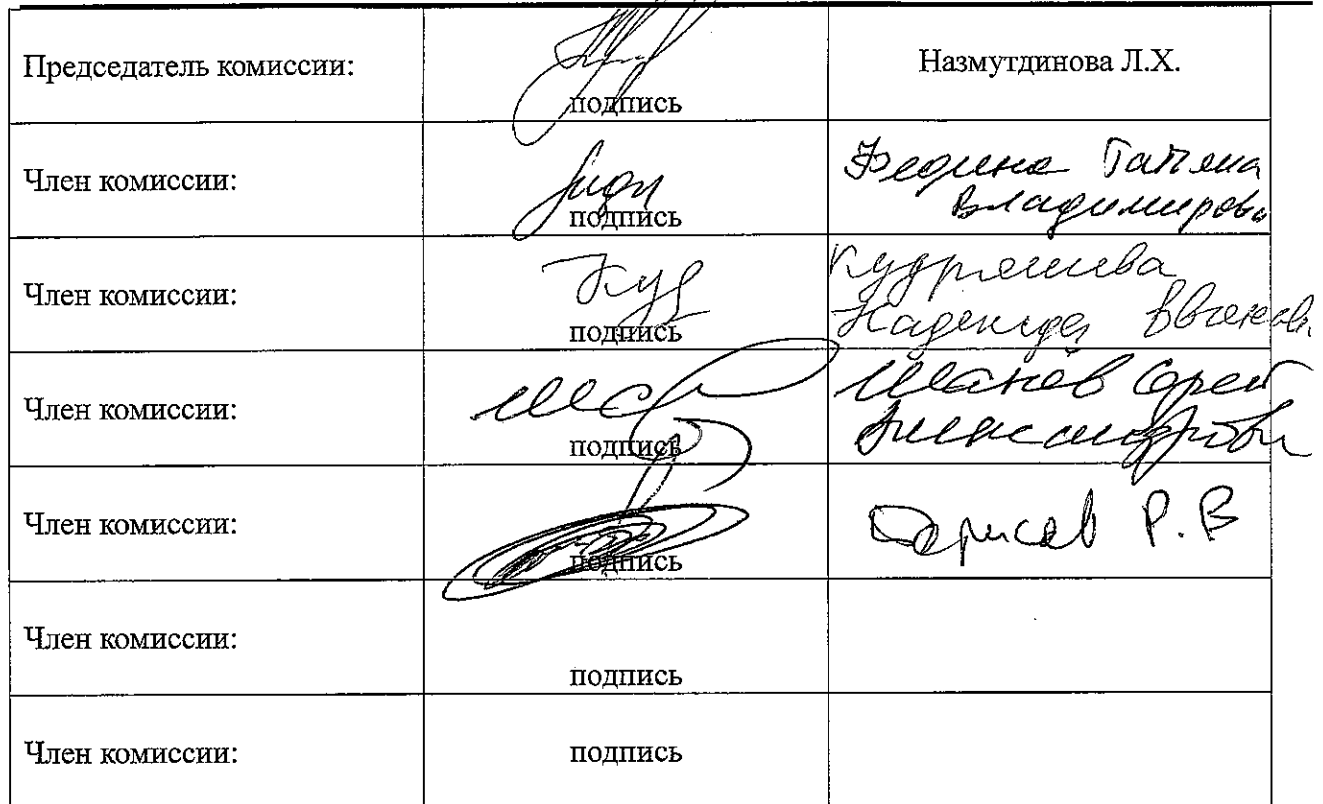 Председатель комиссии:
подпись
Назмутдинова Л.Х.
Член комиссии:
подпись
Федина Татьяна
Владимировна
Член комиссии:
подпись
Кудряшова
Надежда
Член комиссии:
подпись
Шанёв Сергей
Александрович
Член комиссии:
подпись
Борисов Р.В
Член комиссии:
подпись
Член комиссии:
подпись